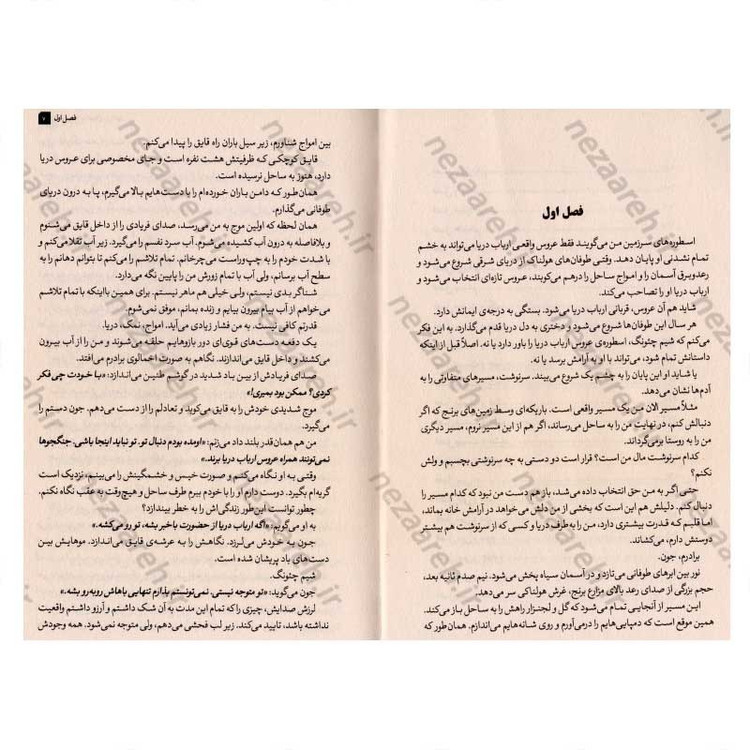 فصل اول
اسطوره‌های سرزمین من می‌گویند فقط عروس واقعی ارباب دریا می‌تواند به خشم
تمام نشدنی او پایان دهد. وقتی طوفان‌های هولناک از دریای شرقی شروع می‌شود و
رعدوبرق آسمان را و امواج ساحل را درهم می‌کوبند، عروس تازه‌ای انتخاب می‌شود و
ارباب دریا او را تصاحب می‌کند.
شاید هم آن عروس، قربانی ارباب دریا می‌شود. بستگی به درجه‌ی ایمانش دارد.
هر سال این طوفان‌ها شروع می‌شود و دختری به دل دریا قدم می‌گذارد. به این فکر
می‌کنم که شیم چئونگ، اسطوره‌ی عروس ارباب دریا را باور دارد یا نه. اصلاً قبل از اینکه
داستانش تمام شود، می‌تواند با او به آرامش برسد یا نه.
یا شاید او این پایان را به چشم یک شروع می‌بیند. سرنوشت، مسیرهای متفاوتی را به
آدم‌ها نشان می‌دهد.
مثلاً مسیر الان من یک مسیر واقعی است. باریکه‌ای وسط زمین‌های برنج که اگر
دنبالش کنم، در نهایت من را به ساحل می‌رساند، اگر هم از این مسیر نروم، مسیر دیگری
من را به روستا برمی‌گرداند.
کدام سرنوشت مال من است؟ قرار است دو دستی به چه سرنوشتی بچسبم و ولش
نکنم؟
حتی اگر به من حق انتخاب داده می‌شد، باز هم دست من نبود که کدام مسیر را
دنبال کنم. دلیلش هم این است که بخشی از من دلش می‌خواهد در آرامش خانه بماند،
اما قلبم که قدرت بیشتری دارد، من را به‌طرف دریا و کسی که از سرنوشت هم بیشتر
دوستش دارم، می‌کشاند.
برادرم، جون.
نور بین ابرهای طوفانی می‌تازد و در آسمان سیاه پخش می‌شود. نیم صدم ثانیه بعد،
حجم بزرگی از صدای رعد بالای مزارع برنج، غرش هولناکی سر می‌دهد.
این مسیر از آنجایی تمام می‌شود که گل و لجنزار راهش را به ساحل باز می‌کند.
همین موقع است که دمپایی‌هایم را درمی‌آورم و روی شانه‌هایم می‌اندازم. همان‌طور که
فصل اول ۷
بین امواج شناورم، زیر سیل باران راه قایق را پیدا می‌کنم.
قایق کوچکی که ظرفیتش هشت نفره است و جای مخصوصی برای عروس دریا
دارد، هنوز به ساحل نرسیده است.
همان‌طور که دامن باران خورده‌ام را با دست‌هایم بالا می‌گیرم، پا به درون دریای
طوفانی می‌گذارم.
همان لحظه که اولین موج به من می‌رسد، صدای فریادی را از داخل قایق می‌شنوم
و بلافاصله به درون آب کشیده می‌شوم. آب سرد نفسم را می‌گیرد. زیر آب تقلا می‌کنم و
با شدت خودم را به چپ‌وراست می‌چرخانم. تمام تلاشم را می‌کنم تا بتوانم دهانم را به
سطح آب برسانم، ولی آب با تمام زورش من را پایین نگه می‌دارد.
شناگر بدی نیستم، ولی خیلی هم ماهر نیستم. برای همین بااینکه با تمام تلاشم
می‌خواهم از آب بیام بیرون بیایم و زنده بمانم، موفق نمی‌شوم.
قدرتم کافی نیست. به من فشار زیادی می‌آید. امواج، نمک، دریا.
یک دفعه دست‌های قوی‌ای دور بازوهایم حلقه می‌شوند و من را از آب بیرون
می‌کشند و داخل قایق می‌اندازند. نگاهم به صورت اخمالوی برادرم می‌افتد.
صدای فریادش از بین باد شدید در گوشم طنین می‌اندازد: «با خودت چی فکر
کردی؟ ممکن بود بمیری!»
موج شدیدی خودش را به قایق می‌کوبد و تعادلم را از دست می‌دهم. جون دستم را
می‌گیرد.
من هم همان‌قدر بلند داد می‌زنم: «اومده بودم دنبال تو. تو نباید اینجا باشی. جنگجوها
نمی‌تونند همراه عروس ارباب دریا برند.»
وقتی به او نگاه می‌کنم و صورت خیس و خشمگینش را می‌بینم، نزدیک است
گریه‌ام بگیرد. دوست دارم او را با خودم ببرم طرف ساحل و هیچ‌وقت به عقب نگاه نکنم.
چطور توانست این‌طور زندگی‌اش را به خطر بیندازد؟
به او می‌گویم: «اگه ارباب دریا از حضورت باخبر بشه، تو رو می‌کشه.»
جون به خودش می‌لرزد. نگاهش را به عرشه‌ی قایق می‌اندازد. موهایش بین
دست‌های باد پریشان شده است.
شیم چئونگ.
جون می‌گوید: «تو متوجه نیستی. نمی‌تونستم بذارم تنهایی باهاش روبه‌رو بشه.»
لرزش صدایش، چیزی را که تمام این مدت به آن شک داشتم و آرزو داشتم واقعیت
نداشته باشد، تایید می‌کند. زیر لب فحشی می‌دهم، ولی متوجه نمی‌شود. همه وجودش
nezaareh.ir
nezaareh.ir
nezaareh.ir
nezaareh.ir
nezaareh.ir
nezaareh.ir